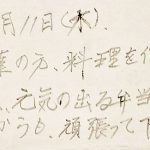 月11日(木).
業の方、料理を作
、元気の出る弁当
からも、頑張って下